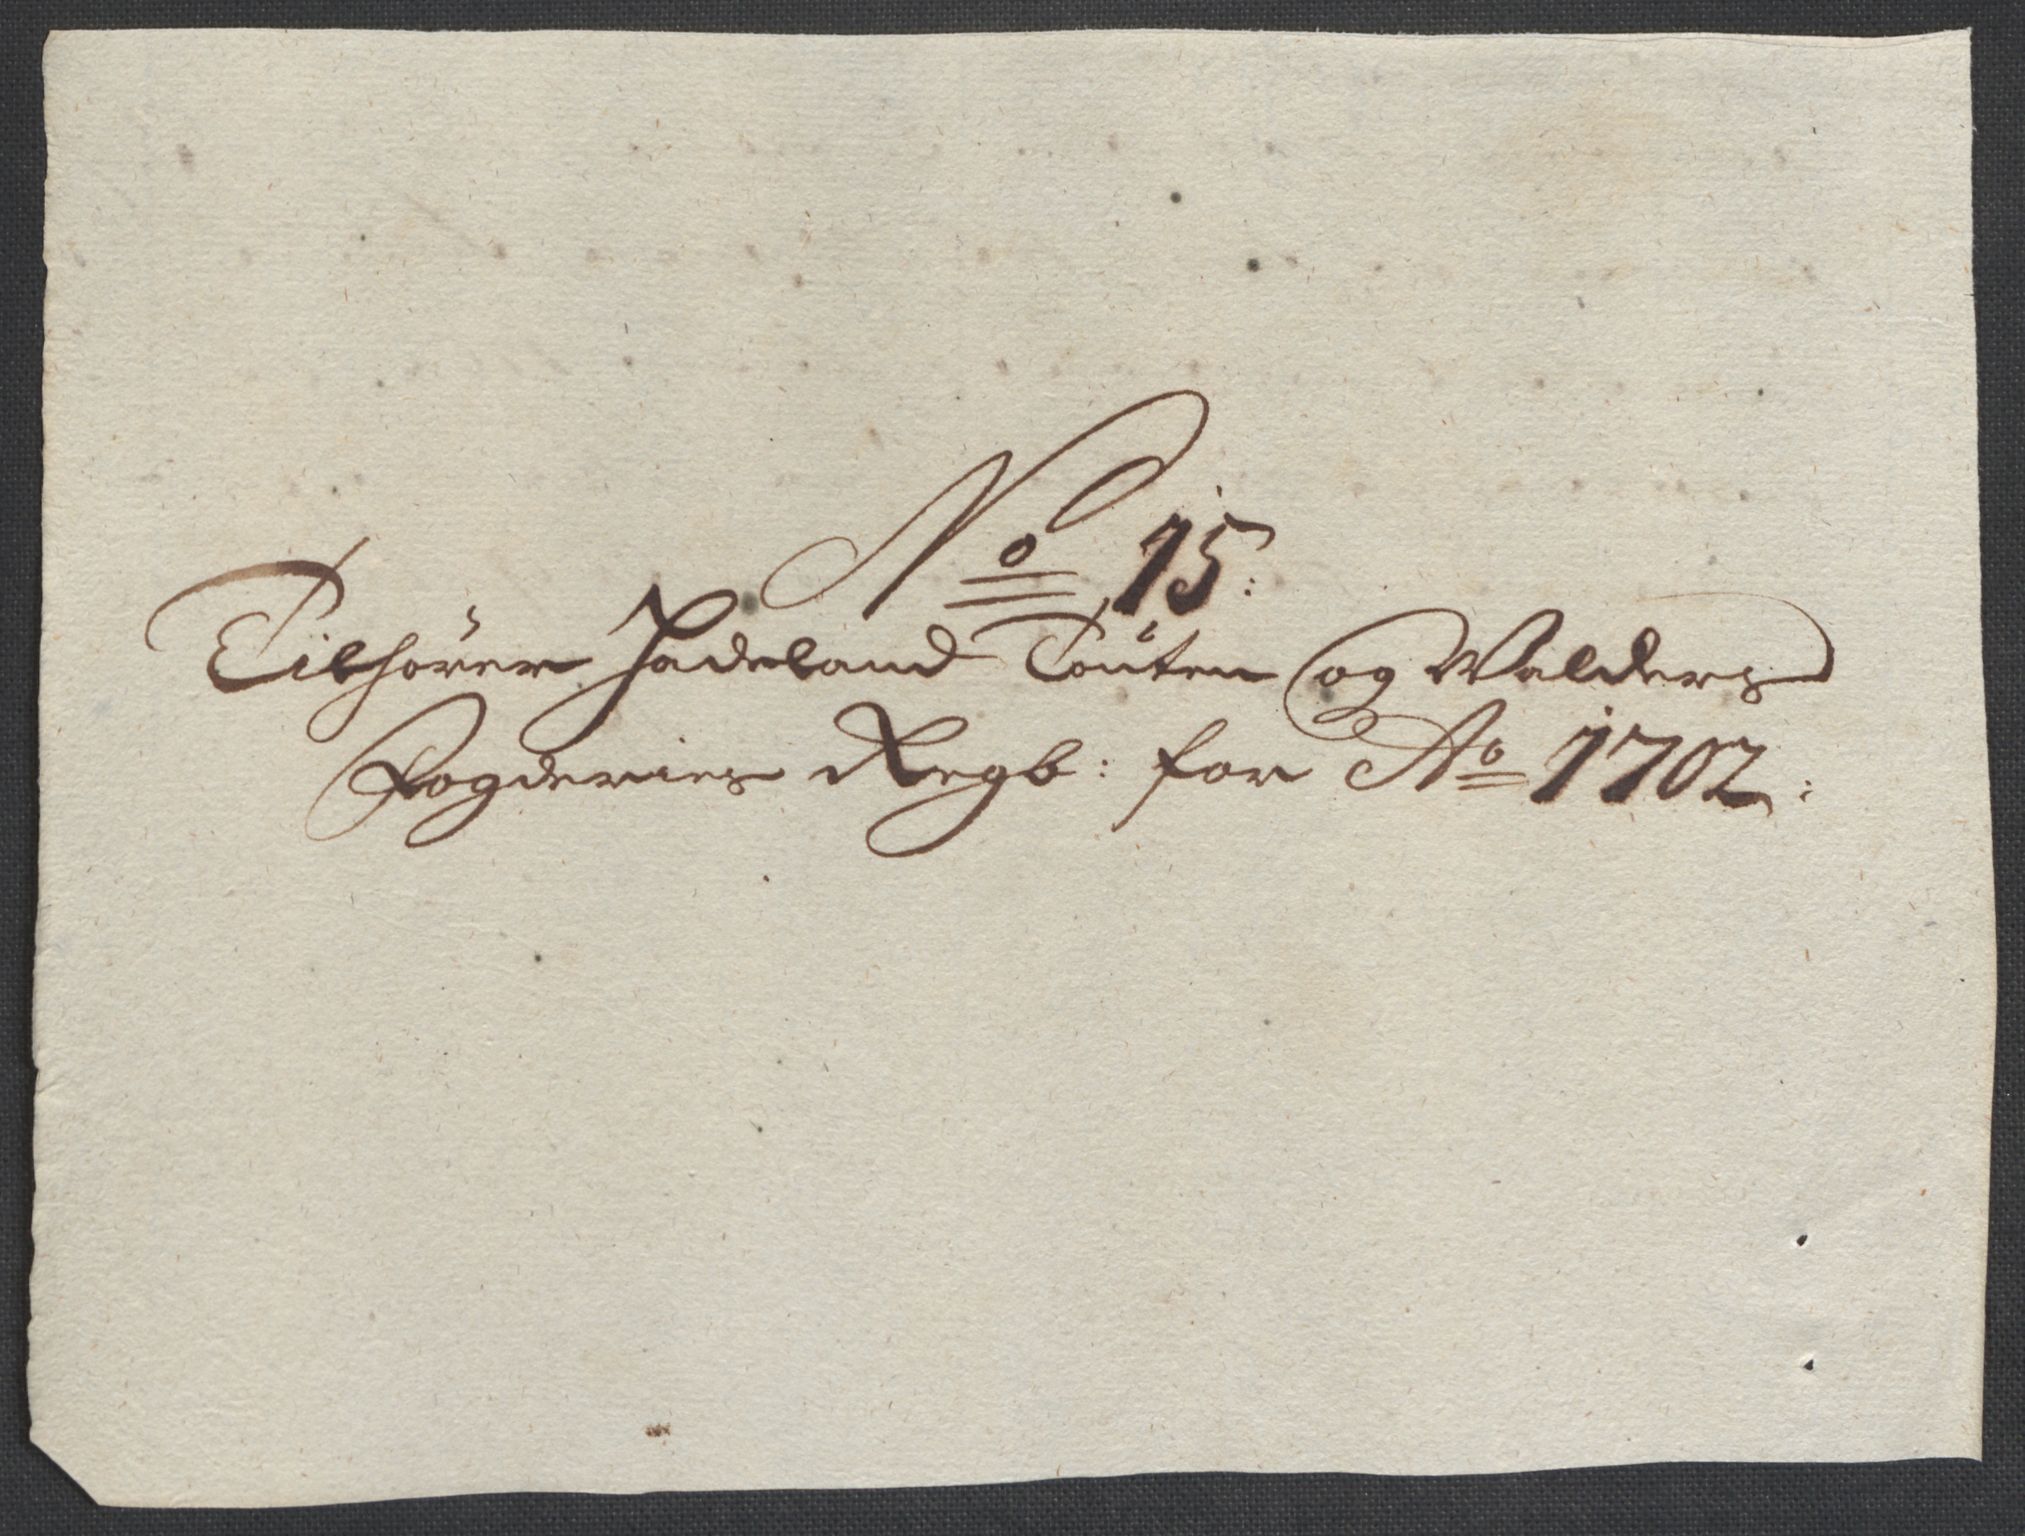 No 15:
Tilhører Hadeland Touten og Valders
Fogderies Regb: for Ao 1702: